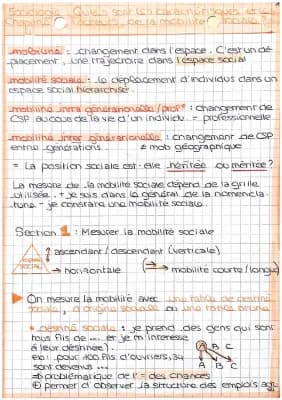 Sociologie : Quels sont les caractéristiques et les
Chapitre facteurs de la mobilité sociale ?
mobilité : changement dans l'espace. C'est un dé-
placement, une trajectoire dans l'espace social
mobilité sociale : le déplacement d'individus dans un
espace social hiérarchisé.
mobilité intra générationelle / prof° : changement de
CSP au cours de la vie d'un individu = professionnelle
mobilité inter générationelle : changement de CSP
entre générations ≠ mob géographique
= La position sociale est-elle héritée ou méritée ?
La mesure de la mobilité sociale dépend de la grille
utilisée. + je suis dans le général de la nomencla-
ture - je constate une mobilité sociale.
Section 1 : Mesurer la mobilité sociale
espace social
↗ ascendant / descendant (verticale)
→ horizontale (→ mobilité courte / longue)
▶ On mesure la mobilité avec une table de destiné
sociale, d'origine sociale ou une table brute
* destiné sociale : je prend des gens qui sont
tous fils de ... et je m'interesse
à leur destinée). A B C
ex : pour 100 fils d'ouvriers, 34
sont devenus ... A B C
⇒ problématique de l'= des chances
⊕ permet d'observer la structure des emplois